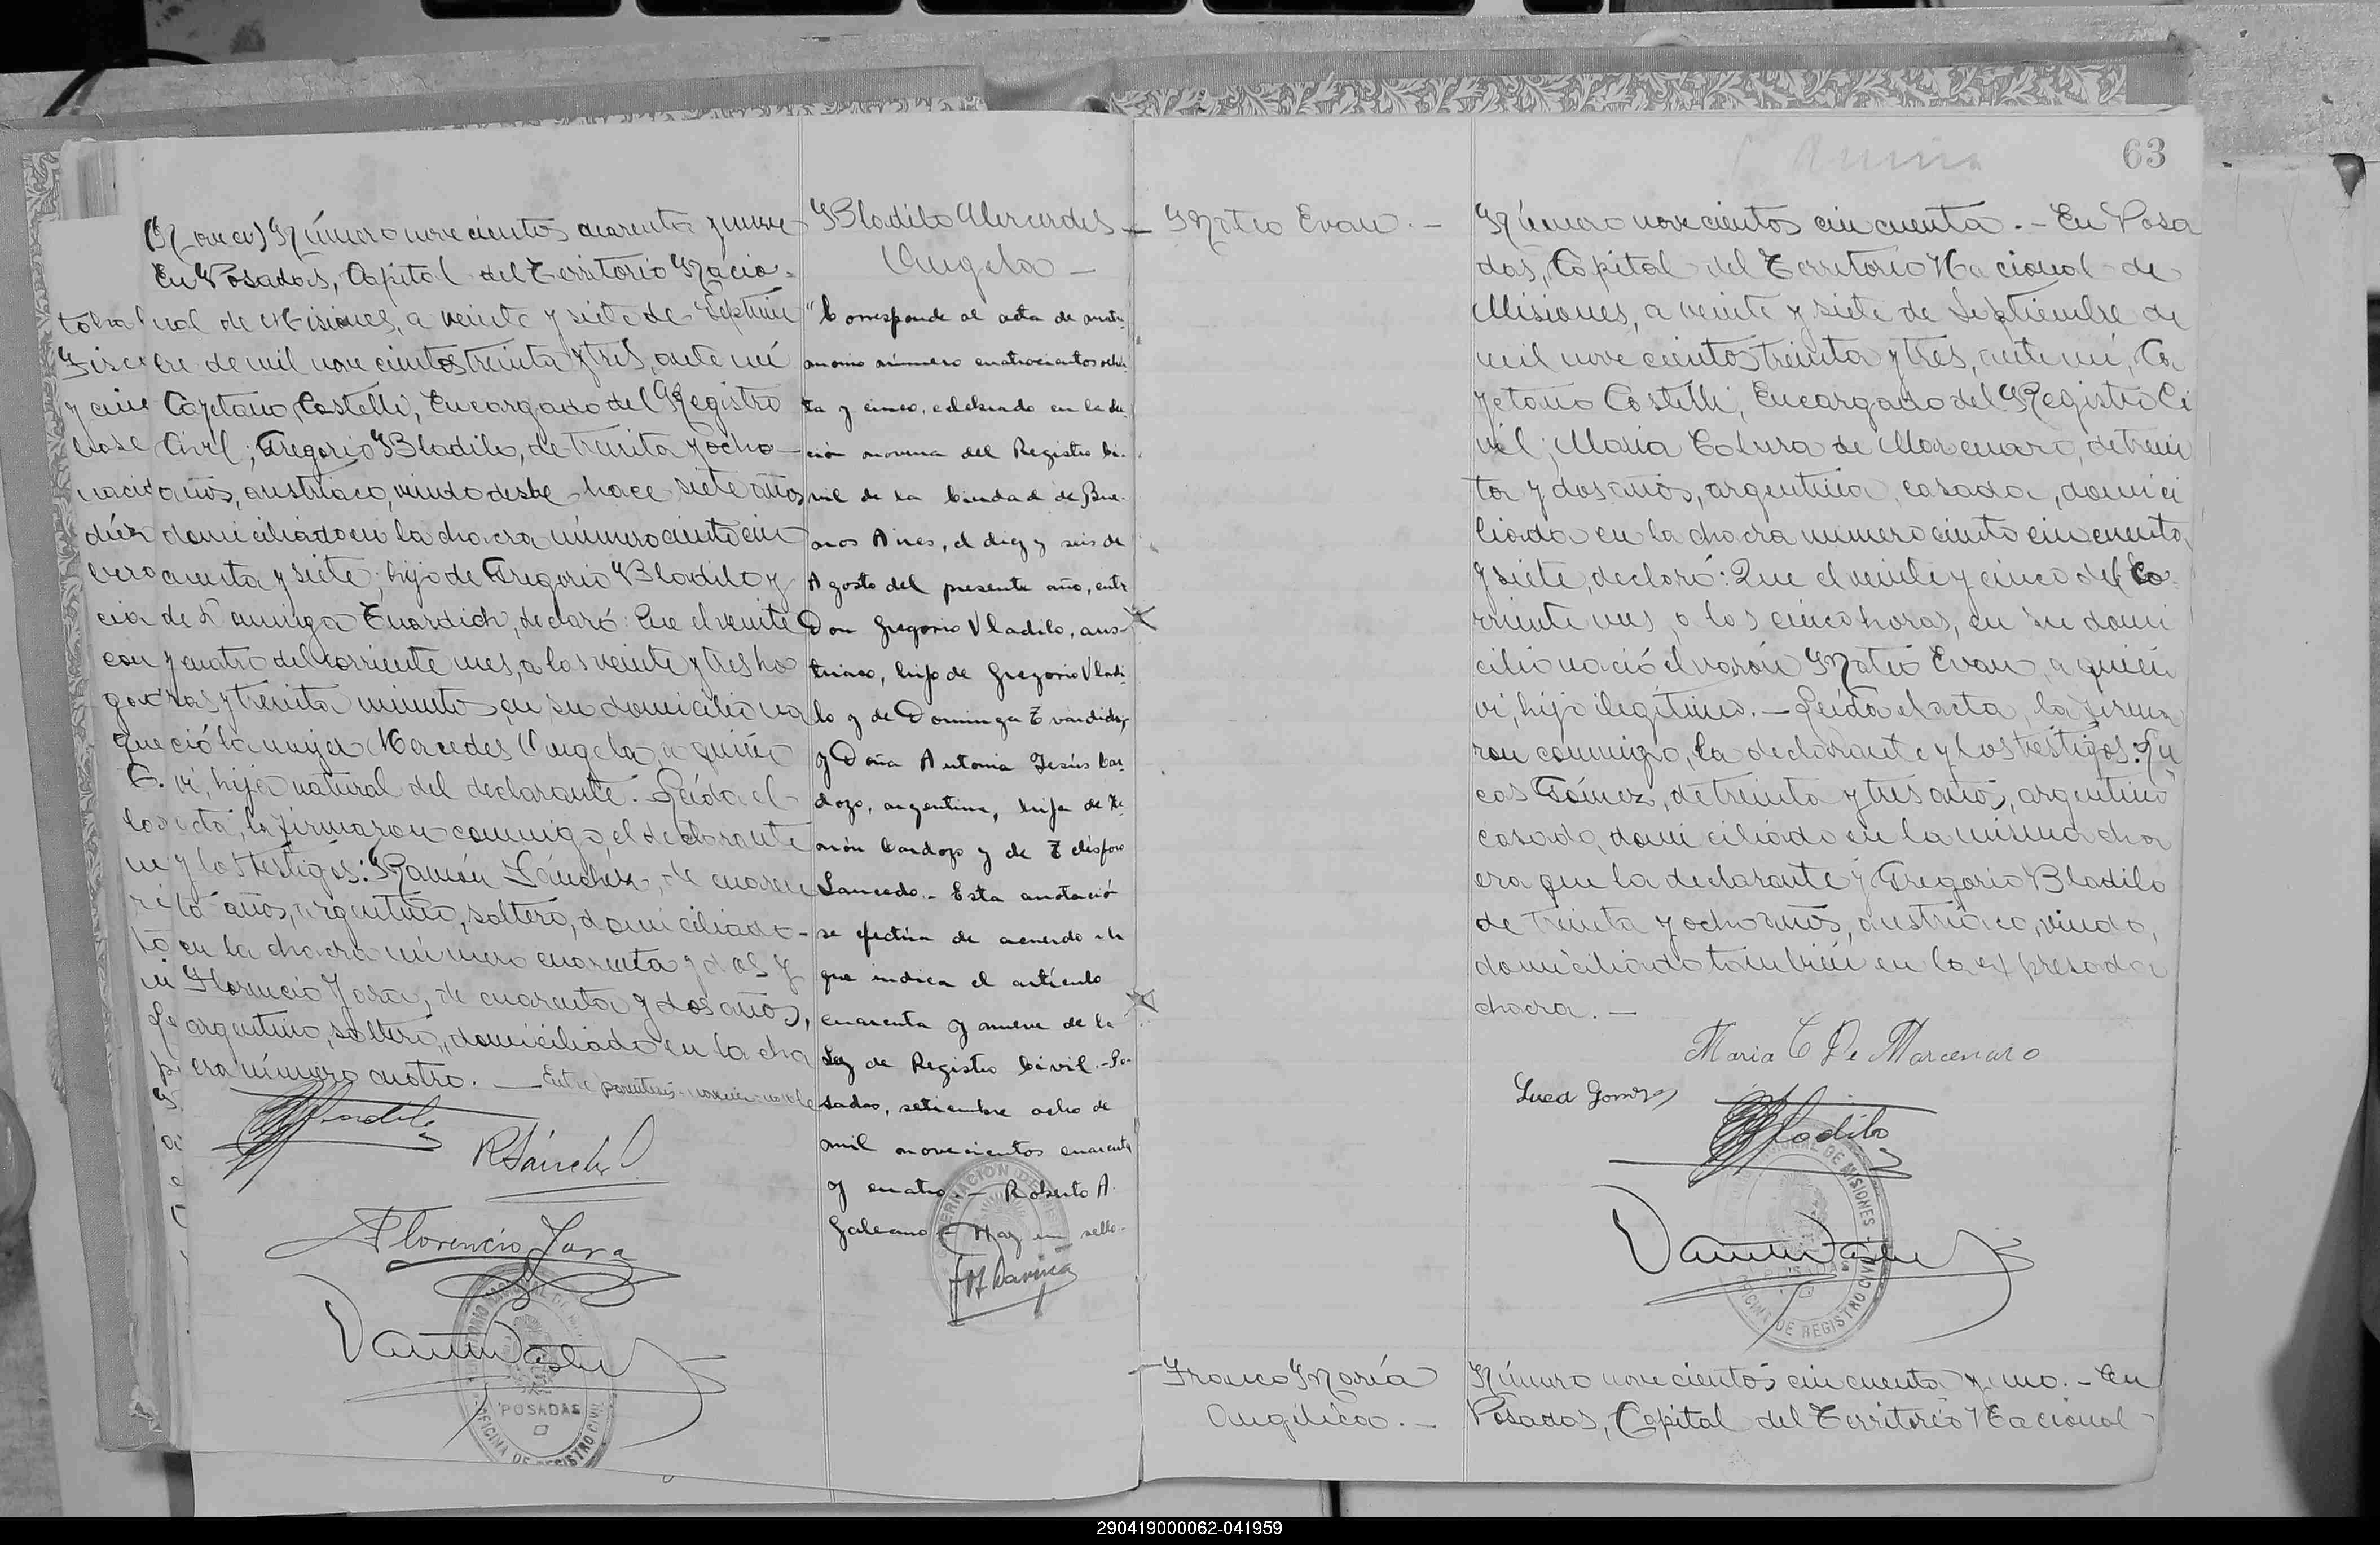 63
(Nueve) Número novecientos cuarenta y nueve
En Posadas, Capital del Territorio Nacio-
nal de Misiones, a veinte y siete de Septiem
bre de mil novecientos treinta y tres, ante mí
Cayetano Castelli, Encargado del Registro
Civil; Gregorio Bladilo, de treinta y ocho
años, austriaco, viudo desde hace siete años
domiciliado en la chacra número ciento cin
cuenta y siete; hijo de Gregorio Bladilo y
de Dominga Tvardich, declaró: Que el veinte
y cuatro del corriente mes, a las veinte y tres ho
ras y treinta minutos, en su domicilio na
ció la mujer Mercedes Angela, a quién
vi, hija natural del declarante. Leída el
acta, la firmaron conmigo, el declarante
y los testigos: Ramón Sánchez, de cuaren
ta años, argentino, soltero, domiciliado-
en la chacra número cuarenta y dos y
Florencio Jara, de cuarenta y dos años,
argentino, soltero, domiciliado en la cha
cra número cuatro. — Entre paréntesis
Bladilo
RSánchez
Florencio Jara
POSADAS
OFICINA DE REGISTRO CIVIL
Bladilo Mercedes
Angela —
"Corresponde al acta de matri-
monio número cuatrocientos ochen-
ta y cinco, celebrado en la Sec-
ción novena del Registro Ci-
vil de la Ciudad de Bue-
nos Aires, el diez y seis de
Agosto del presente año, entre
Don Gregorio Vladilo, aus-
triaco, hijo de Gregorio Vladi-
lo y de Dominga Tvardich y
Doña Antonia Jesús Car-
dozo, argentina, hija de
Cardozo y de Telésfora
Saucedo.- Esta anotación
se efectúa de acuerdo a lo
que indica el artículo
cuarenta y nueve de la
Ley de Registro Civil.- Po-
sadas, setiembre ocho de
mil novecientos cuarenta
y cuatro.- Roberto A.
Galeano - Hay un sello-
Mateo Evan. -
Número novecientos cincuenta. - En Posa
das, Capital del Territorio Nacional de
Misiones, a veinte y siete de Septiembre de
mil novecientos treinta y tres, ante mí, Ca
yetano Castelli, Encargado del Registro Ci
vil; María de Marcenaro, de trein
ta y dos años, argentina, casada, domici
liada en la chacra número ciento cincuenta
y siete, declaró: Que el veinte y cinco del co
rriente mes, a las cinco horas, en su domi
cilio nació el varón Mateo Evan, a quién
vi, hijo ilegítimo. - Leída el acta, la firma
ron conmigo, la declarante y los testigos: Lu
cas Gómez, de treinta y tres años, argentino
casado, domiciliado en la misma cha
cra que la declarante y Gregorio Bladilo
de treinta y ocho años, austriaco, viudo,
domiciliado también en la expresada
chacra. —
Maria C De Marcenaro
Luca Gomez
Bladilo
NACIONAL DE MISIONES
POSADAS
OFICINA DE REGISTRO CIVIL
Franco María
Angélica. -
Número novecientos cincuenta y uno. - En
Posadas, Capital del Territorio Nacional
290419000062-041959